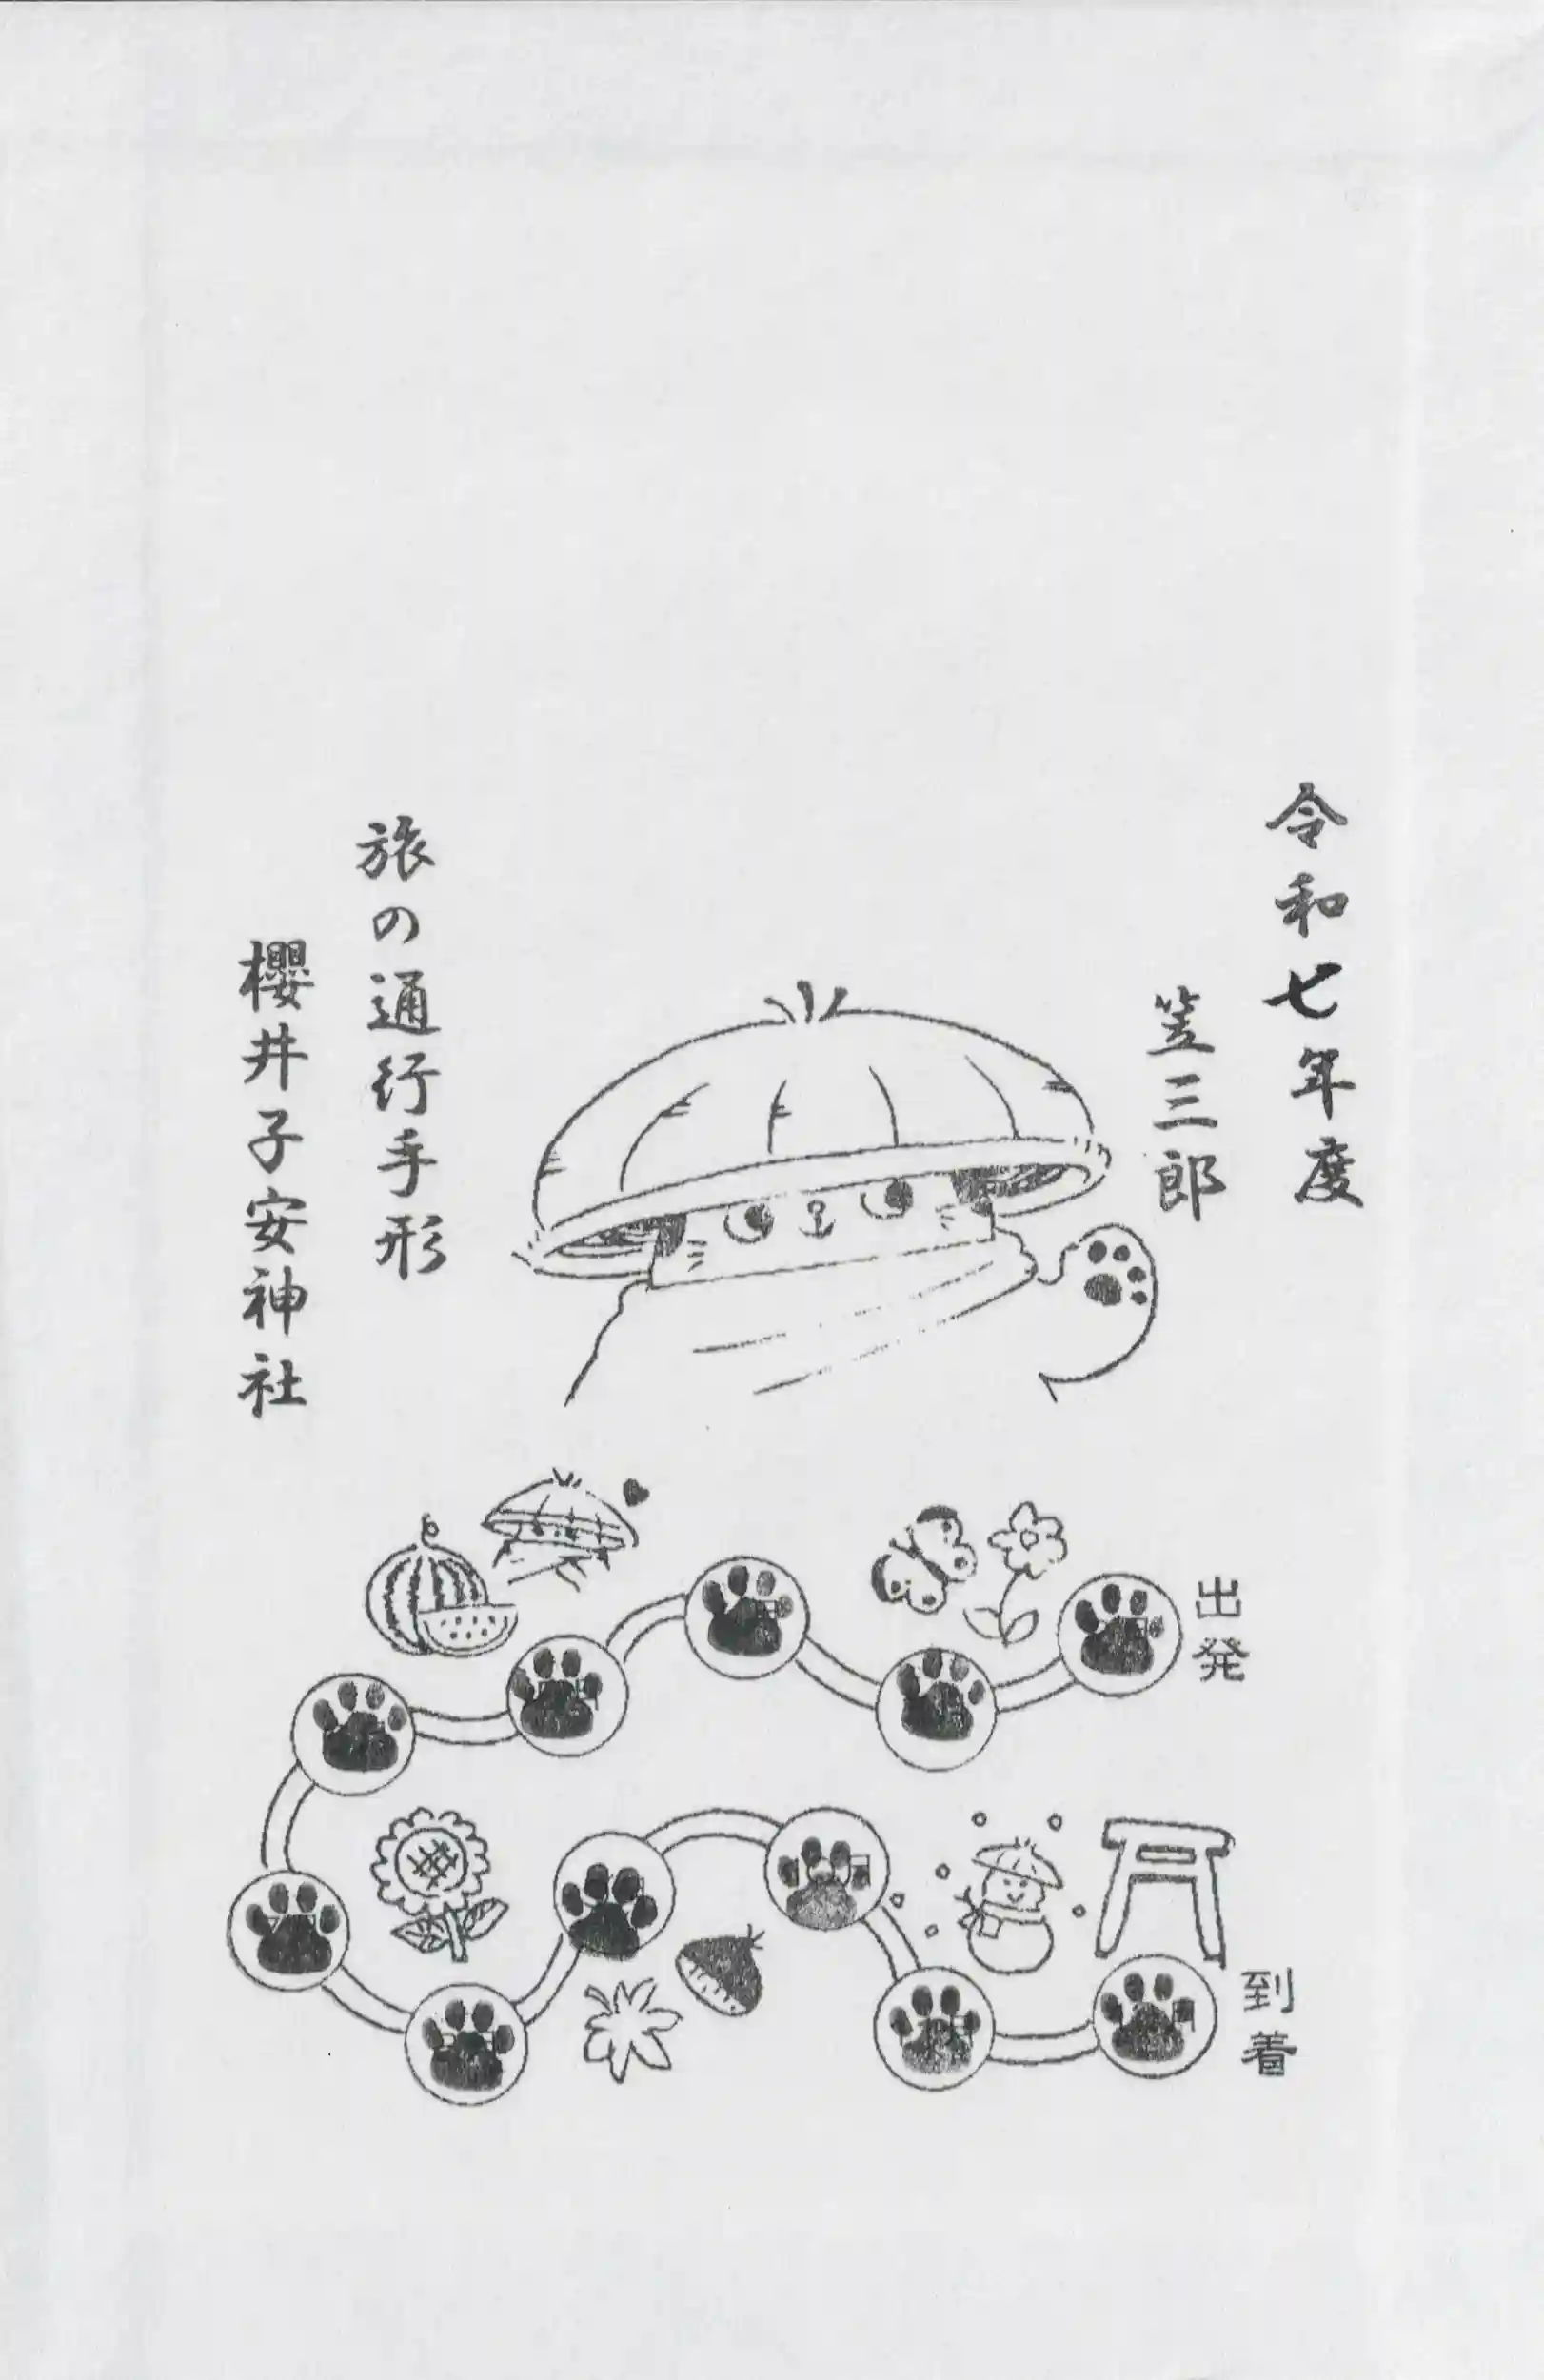 令和七年度
笠三郎
旅の通行手形
櫻井子安神社
出発
到着